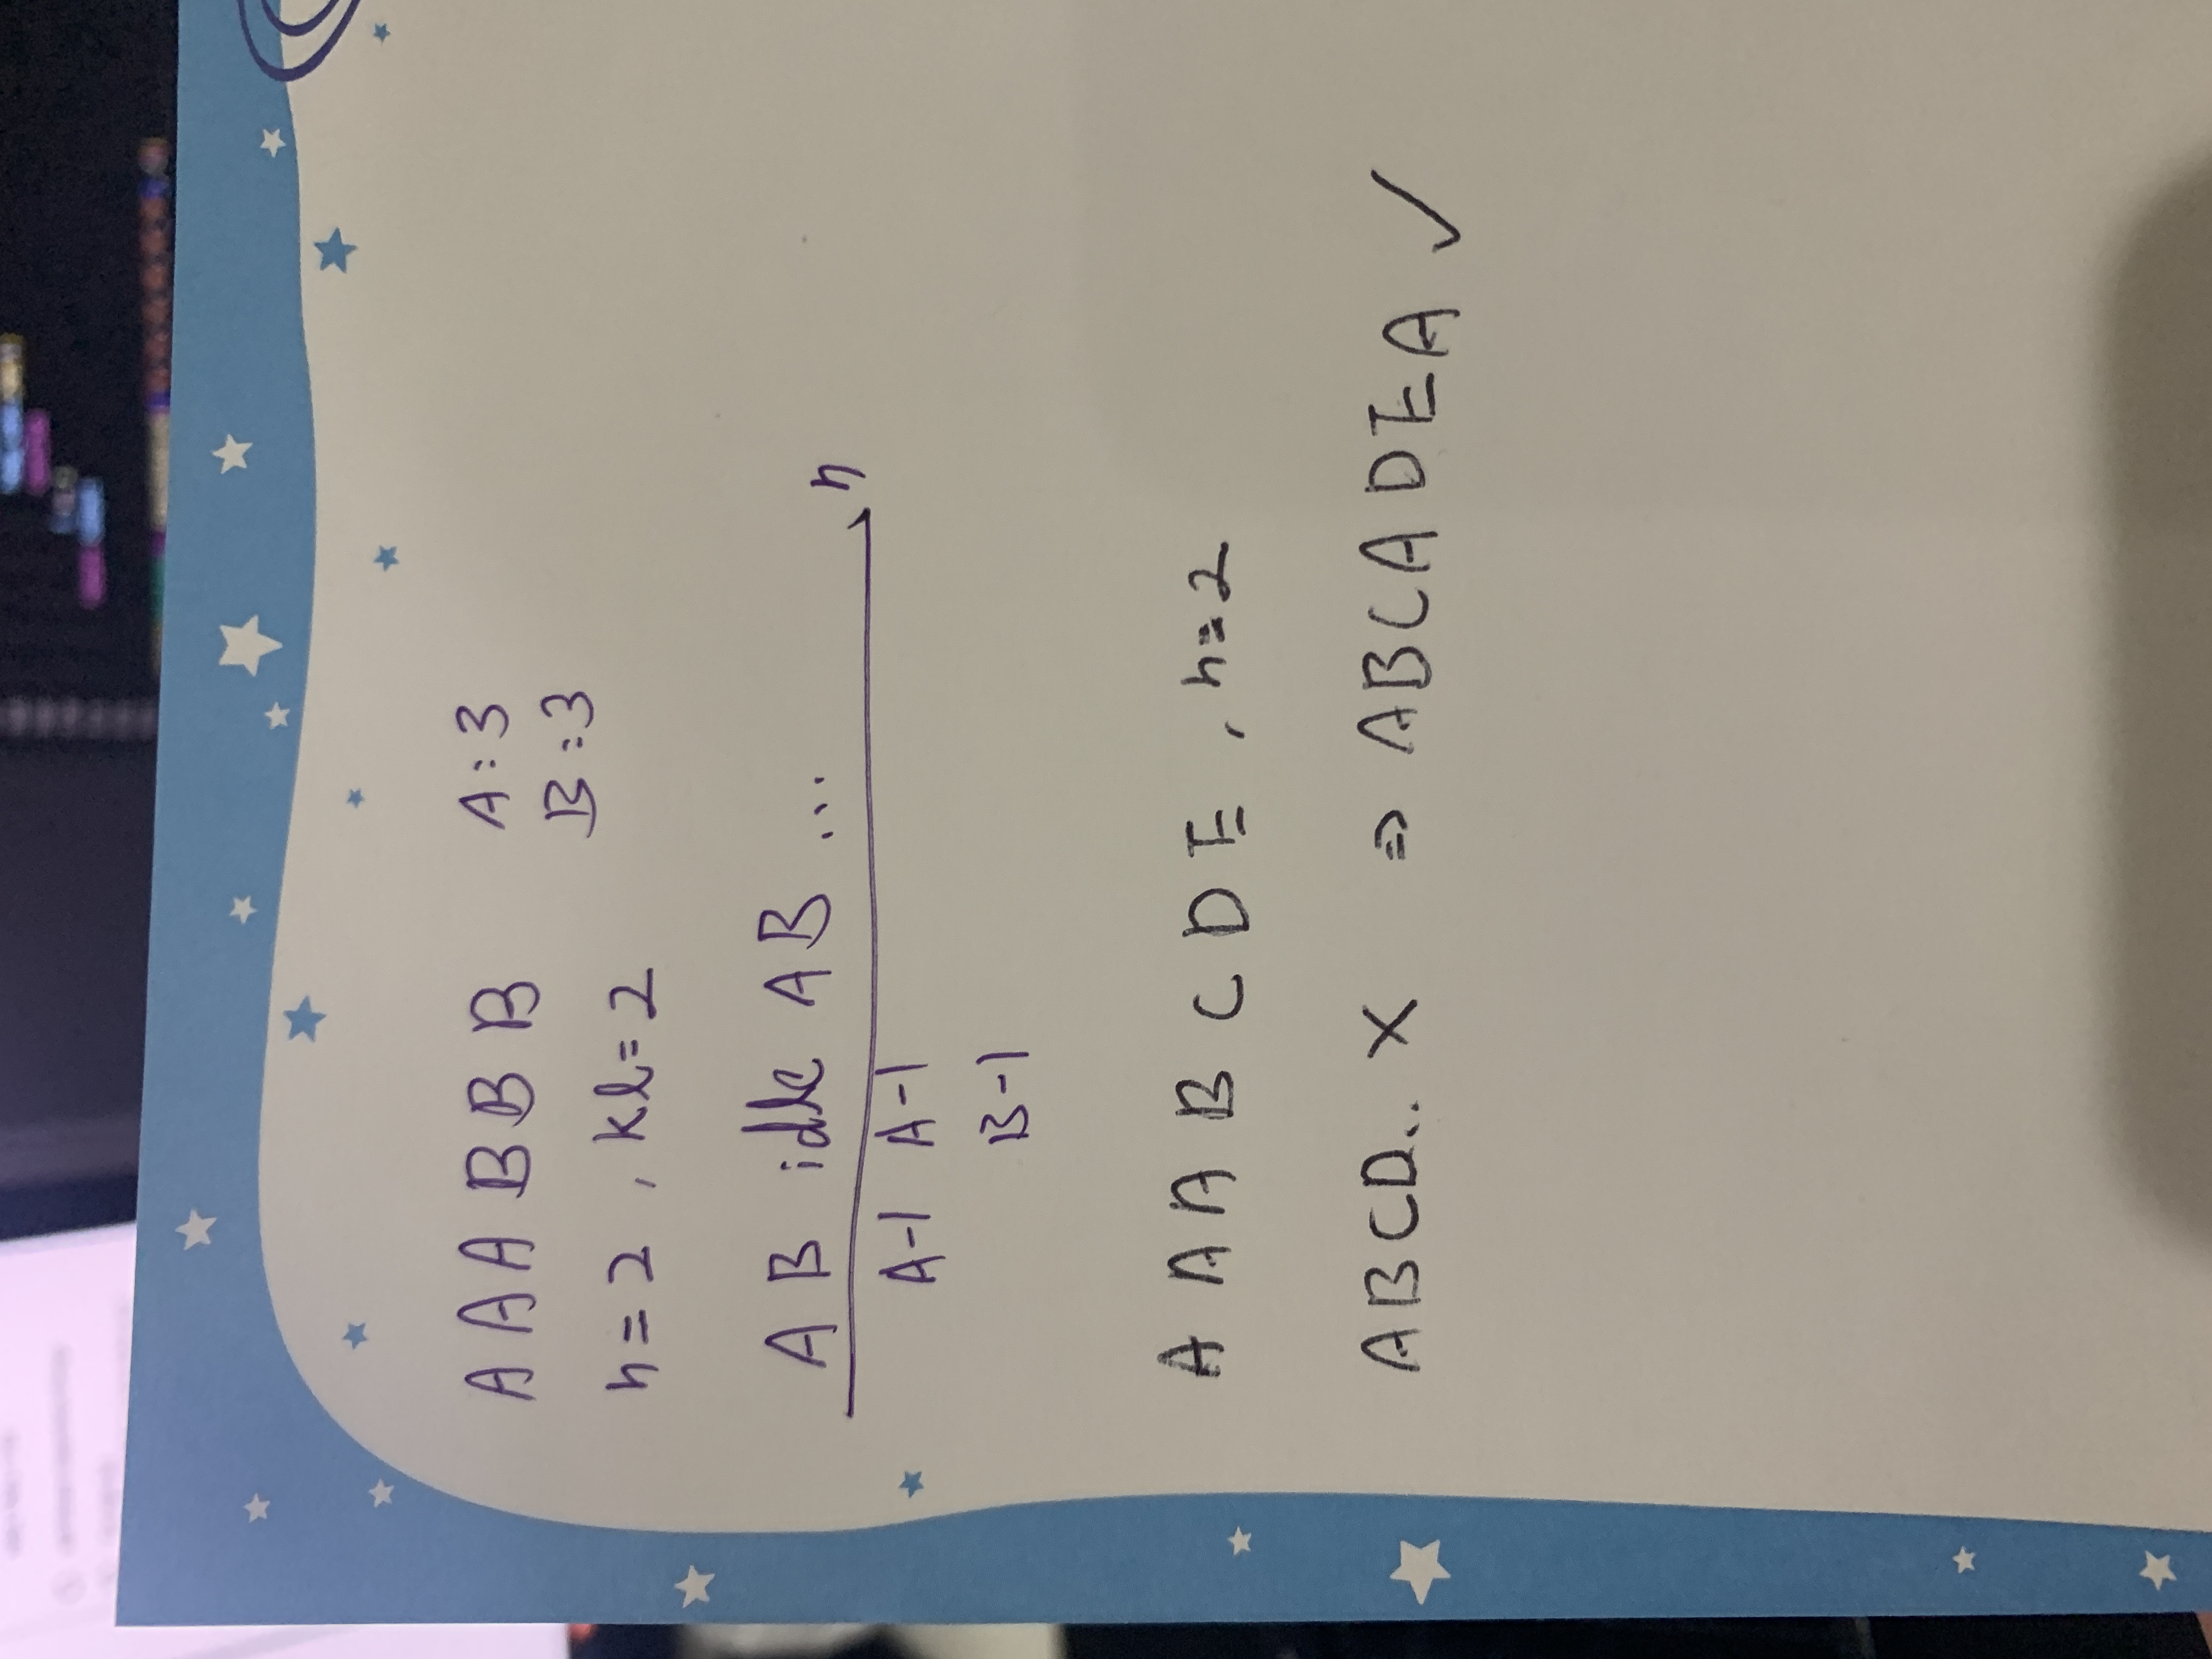 A A A B B B A:3
B:3
n=2, kl=2
A B idle A B ... n
A-1 A-1
B-1
A A A B C D E, n=2
ABCD.. X ⇒ ABCADEA ✓